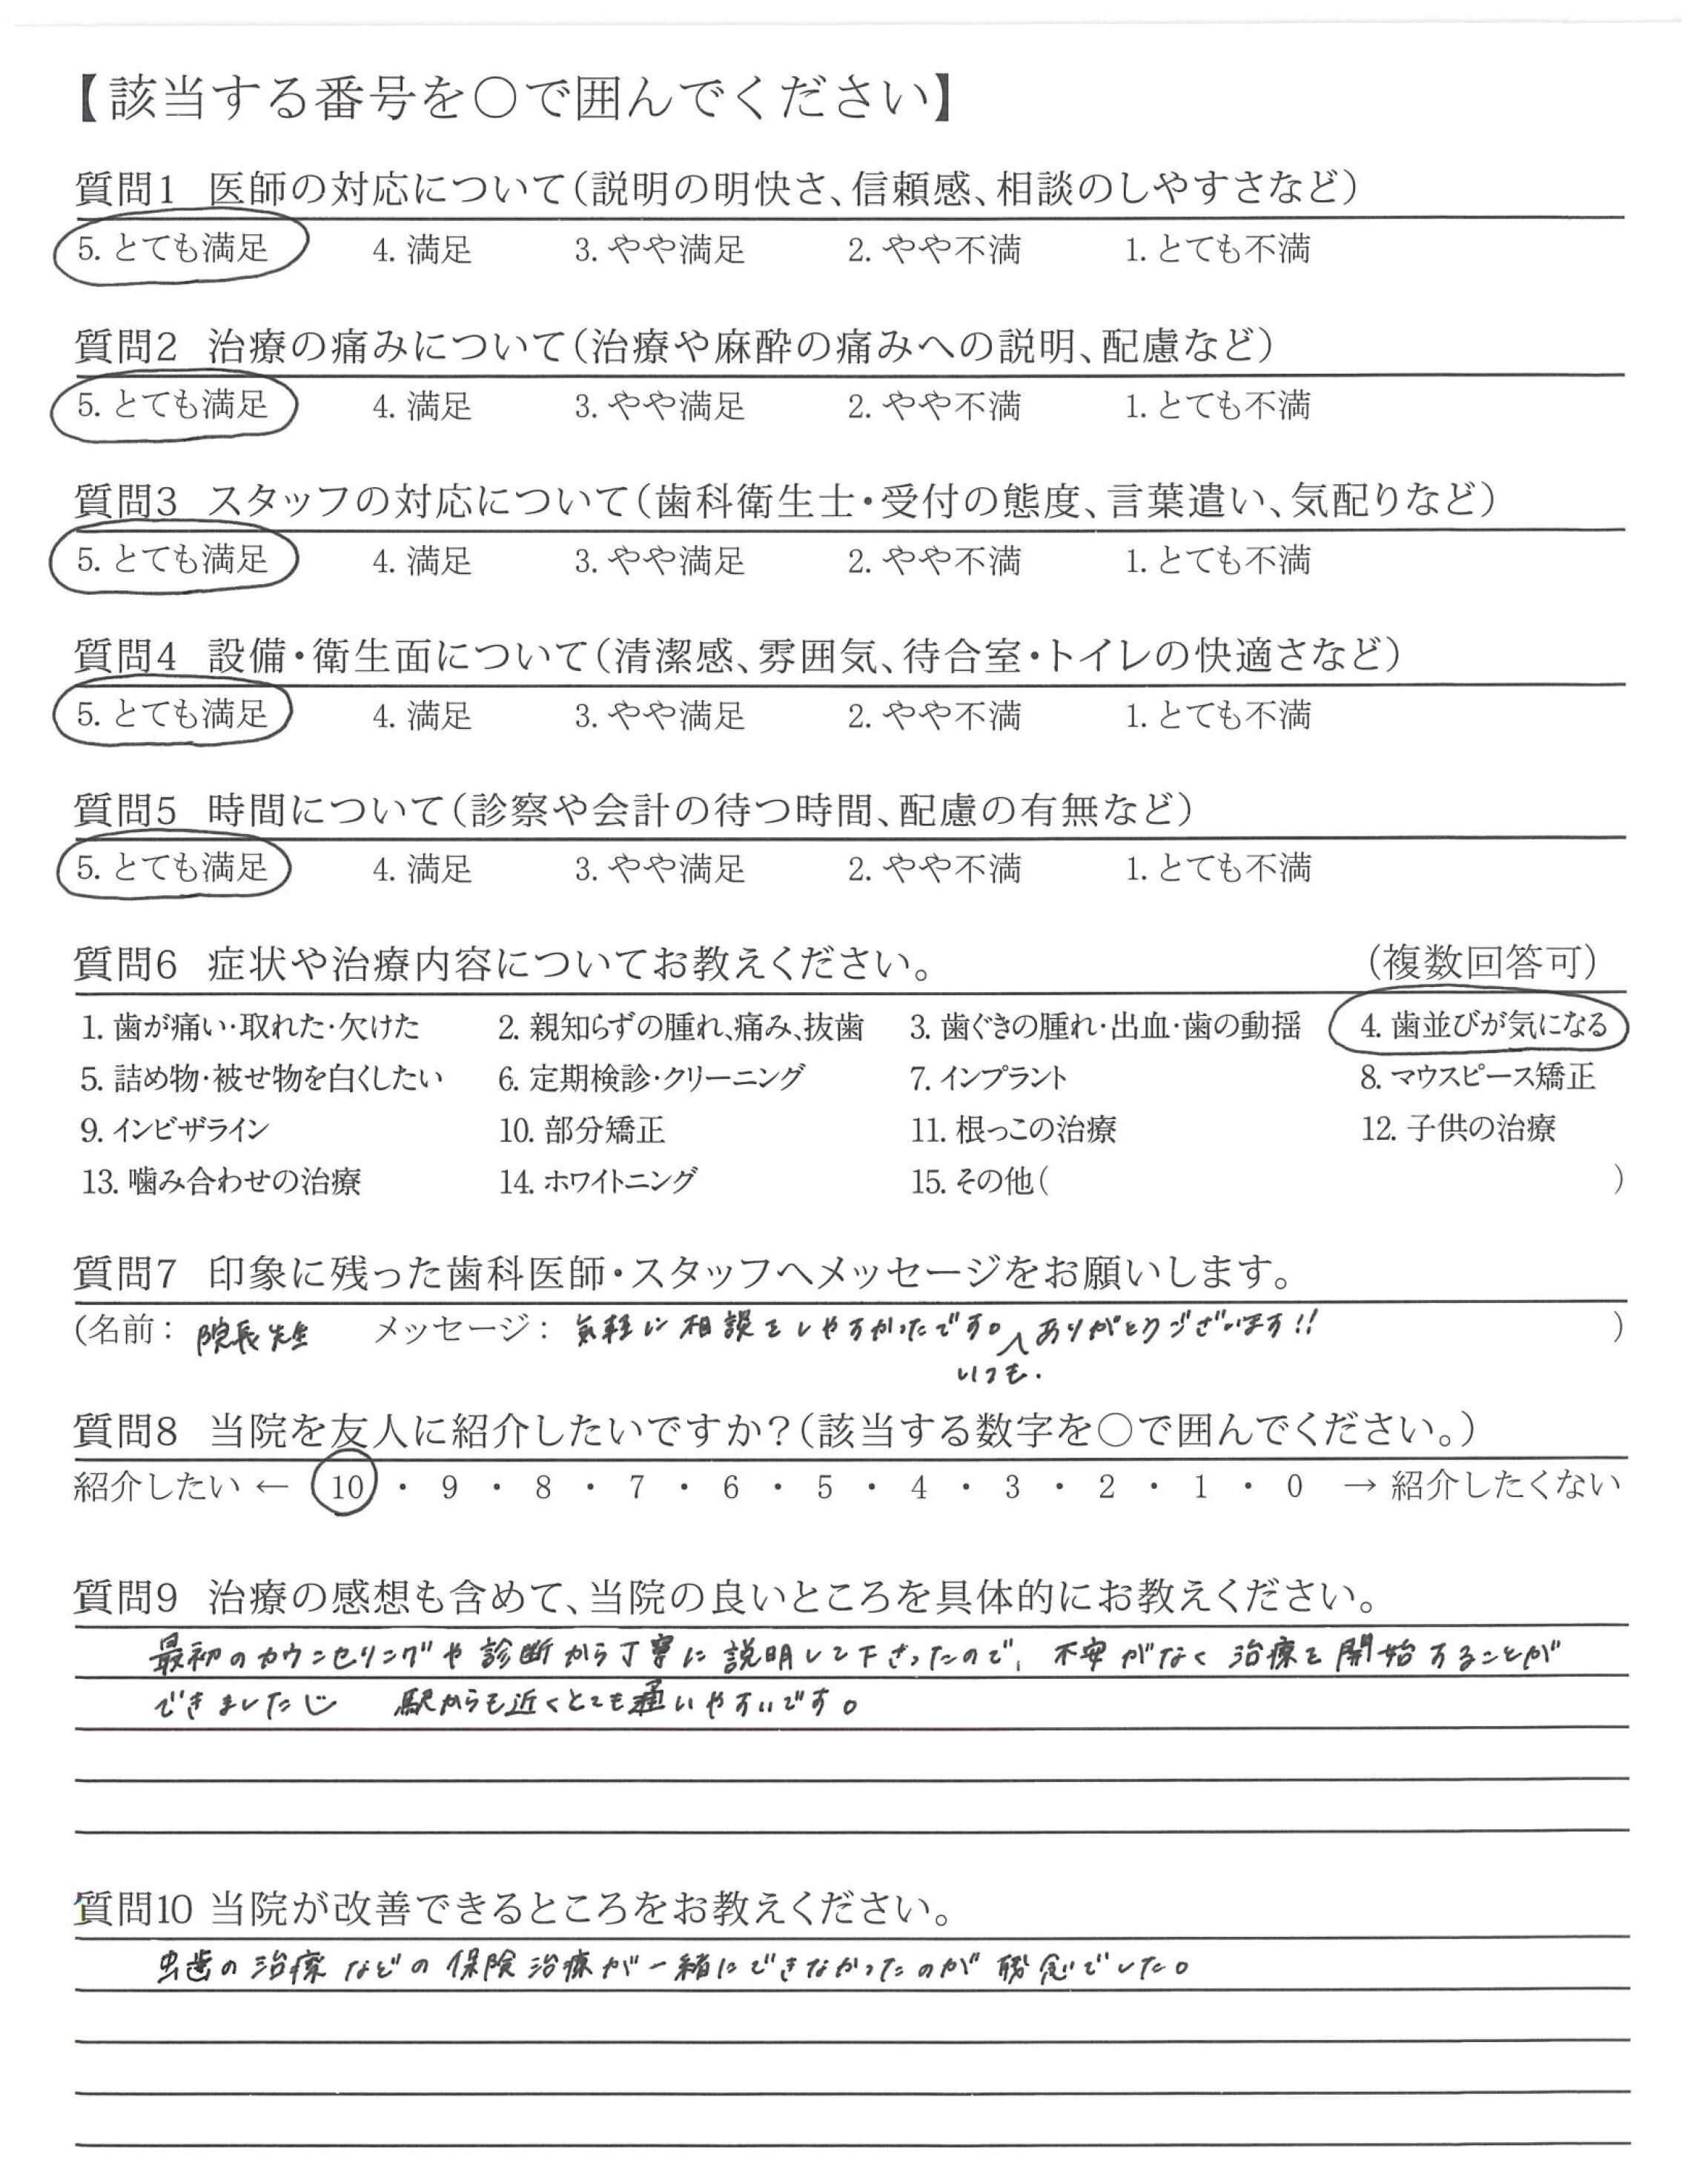 【該当する番号を○で囲んでください】
質問1 医師の対応について(説明の明快さ、信頼感、相談のしやすさなど)
5. とても満足 4. 満足 3. やや満足 2. やや不満 1. とても不満
質問2 治療の痛みについて(治療や麻酔の痛みへの説明、配慮など)
5. とても満足 4. 満足 3. やや満足 2. やや不満 1. とても不満
質問3 スタッフの対応について(歯科衛生士・受付の態度、言葉遣い、気配りなど)
5. とても満足 4. 満足 3. やや満足 2. やや不満 1. とても不満
質問4 設備・衛生面について(清潔感、雰囲気、待合室・トイレの快適さなど)
5. とても満足 4. 満足 3. やや満足 2. やや不満 1. とても不満
質問5 時間について(診察や会計の待つ時間、配慮の有無など)
5. とても満足 4. 満足 3. やや満足 2. やや不満 1. とても不満
質問6 症状や治療内容についてお教えください。 (複数回答可)
1. 歯が痛い・取れた・欠けた 2. 親知らずの腫れ、痛み、抜歯 3. 歯ぐきの腫れ・出血・歯の動揺 4. 歯並びが気になる
5. 詰め物・被せ物を白くしたい 6. 定期検診・クリーニング 7. インプラント 8. マウスピース矯正
9. インビザライン 10. 部分矯正 11. 根っこの治療 12. 子供の治療
13. 噛み合わせの治療 14. ホワイトニング 15. その他( )
質問7 印象に残った歯科医師・スタッフへメッセージをお願いします。
(名前: 院長先生 メッセージ: 気軽に相談をしやすかったです。ありがとうございます!! )
いつも.
質問8 当院を友人に紹介したいですか?(該当する数字を○で囲んでください。)
紹介したい ← 10 ・ 9 ・ 8 ・ 7 ・ 6 ・ 5 ・ 4 ・ 3 ・ 2 ・ 1 ・ 0 → 紹介したくない
質問9 治療の感想も含めて、当院の良いところを具体的にお教えください。
最初のカウンセリングや診断から丁寧に説明して下さったので、不安がなく治療を開始することが
できましたし 駅からも近くとても通いやすいです。
質問10 当院が改善できるところをお教えください。
虫歯の治療などの保険治療が一緒にできなかったのが残念でした。